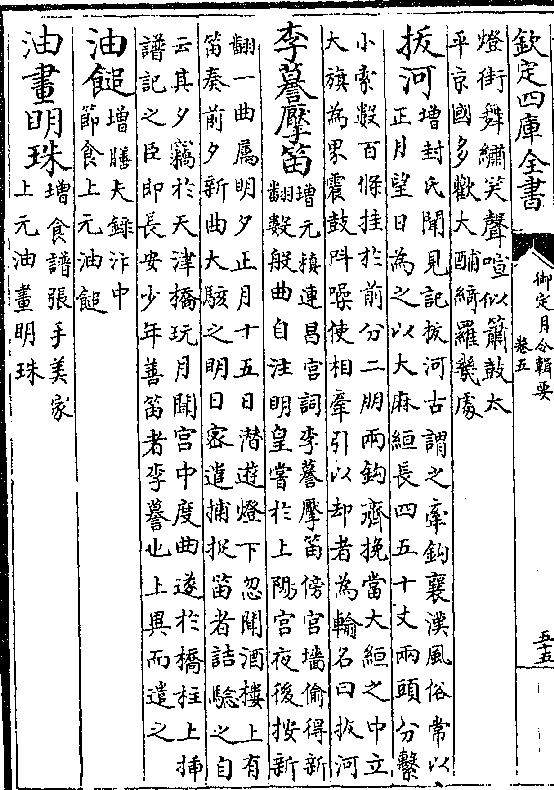 欽定四庫全書
御定月令輯要
卷五
五十五
燈街舞繡笑聲喧似簫鼓太
平京國多歡大酺綺羅幾處
拔河
增封氏聞見記拔河古謂之牽鉤襄漢風俗常以
正月望日為之以大麻絙長四五十丈兩頭分繫
小索數百條挂於前分二朋兩鉤齊挽當大絙之中立
大旗為界震鼓叫噪使相牽引以却者為輸名曰拔河
李謩擪笛
增元稹連昌宮詞李謩擪笛傍宮墻偷得新
翻數般曲自注明皇嘗於上陽宮夜後按新
翻一曲屬明夕正月十五日潛遊燈下忽聞酒樓上有
笛奏前夕新曲大駭之明日密遣捕捉笛者詰驗之自
云其夕竊於天津橋玩月聞宮中度曲遂於橋柱上挿
譜記之臣即長安少年善笛者李謩也上異而遣之
油䭔
增膳夫錄汴中
節食上元油䭔
油畫明珠
增食譜張手美家
上元油畫明珠